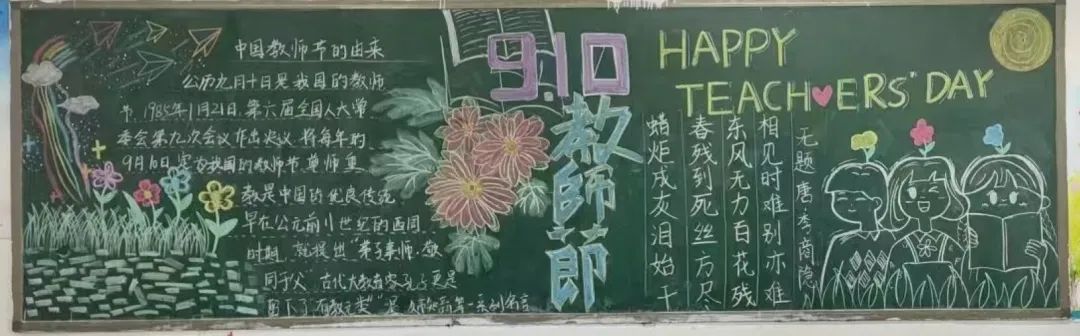 中国教师节的由来
公历九月十日是我国的教师
节.1985年1月21日.第六届全国人大常
委会第九次会议作出决议 将每年的
9月10日 定为我国的教师节 尊师重
教是中国的优良传统
早在公元前11世纪的西周
时期 就提出"弟子事师.敬
同于父 古代大教育家孔子更是
留下了"有教无类"
9.10
教師節
HAPPY
TEACHERS' DAY
无题 唐 李商隐
相见时难别亦难
东风无力百花残
春残到死丝方尽
蜡炬成灰泪始干